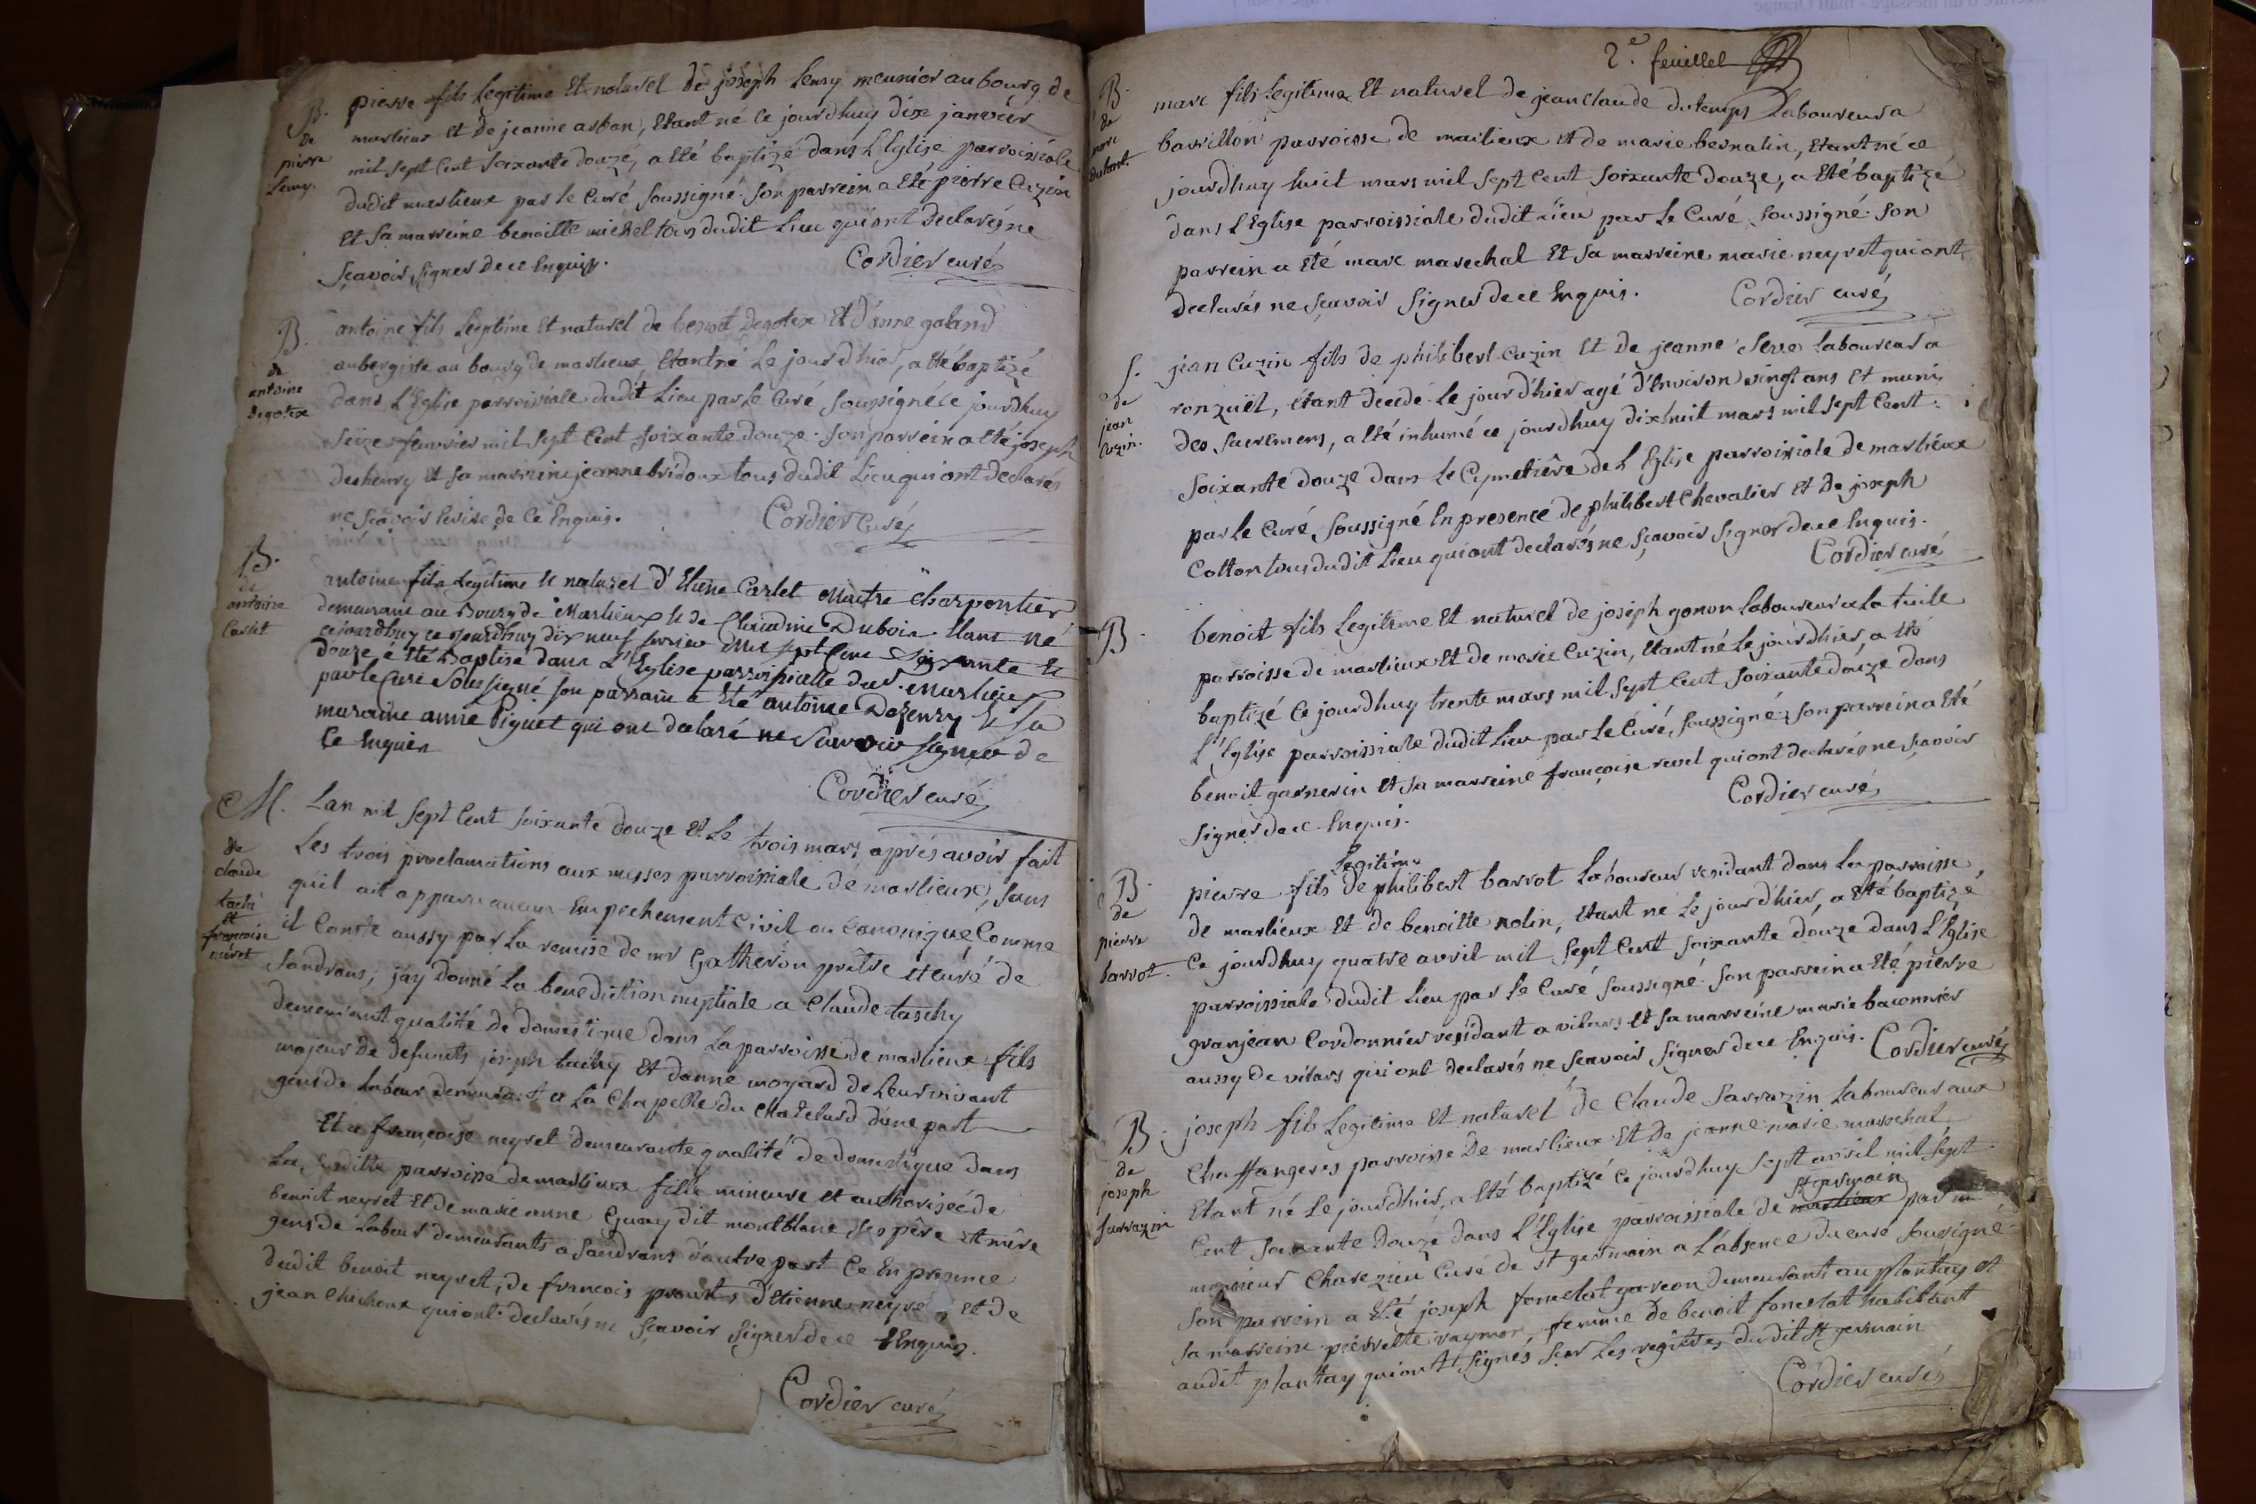 B.
de
pierre
Leury.
pierre fils Legitime Et naturel de joseph Leury meunier au bourg de
marlieux et de jeanne arban, Etant né ce jourdhuy dix janvier
mil sept Cent Soixante douze, a Eté baptizé dans L'Eglise parroissiale
dudit marlieux par le Curé Soussigné. Son parrein a Eté pierre Cuzin
Et Sa marreine benoitte michel tous dudit Lieu qui ont Declarés ne
Scavoir Signer de ce Enquis.
Cordier curé
B.
de
antoine
degotex
antoine fils Legitime Et naturel de benoit Degotex Et d'anne galand
aubergiste au bourg de marlieux, Etant né Le jourd'hier, a Eté baptizé
dans L'Eglise parroissiale dudit Lieu par Le Curé Soussigné Ce jourdhuy
Seize fevrier mil Sept Cent Soixante douze. Son parrein a Eté joseph
deshenry et Sa marreine jeanne bridoux tous dudit Lieu qui ont Declarés
ne Scavoir Ecrire de Ce Enquis.
Cordier Curé
B.
de
antoine
Carlet
antoine fils Legitime et naturel d'Etiene Carlet Maitre Charpentier
demeurant au Bourg de Marlieux et de Claudine Dubois Etant né
cejourdhuy ce jourdhuy dix neuf fevrier Mil Sept Cent Soixante et
Douze a Eté Baptisé dans L'Eglise parroissialle dud. Marlieux
par le Curé Soussigné son parrain a Eté antoine Dezenry Et Sa
maraine anne Piguet qui ont declaré ne Scavoir Signer de
Ce Enquis
Cordier curé
M.
de
claude
tachi
et
francoise
neiret
Lan mil Sept Cent Soixante douze Et Le trois mars aprés avoir fait
Les trois proclamations aux messes parroissiale de marlieux, Sans
qu'il ait apparu aucun Empechement Civil ou Canonique, Comme
il Conste aussy par La remise de mr Gatheron prêtre et curé de
Sandrans, j'ay donné La benediction nuptiale a Claude taschy
demeurant qualité de domestique dans La parroisse de marlieux fils
majeur de defunts joseph tachy Et danne moyard de Leur vivant
gens de Labeur demeurant a La Chapelle du Chatelard d'une part
Et a francoise neyret demeurante qualité de domestique dans
La, Susditte parroisse de marlieux fille mineure et authorisée de
benoit neyret Et de marie anne Guay dit montblanc Ses père Et mère
gens de Labeur demeurants a Sandrans d'autre part Ce En presence
dudit benoit neyret, de francois proust, d'Etienne neyret, et de
jean Chicheux qui ont declarés ne Scavoir Signer de ce Enquis.
Cordier curé
2.e feuillet
B.
de
marc
dutant
marc fils Legitime Et naturel de jean claude dutemps Laboureur a
barrillon parroisse de marlieux et de marie bernalin, Etant né ce
jourdhuy huit mars mil Sept Cent Soixante douze, a Eté baptizé
dans L'Eglise parroissiale dudit Lieu par Le Curé Soussigné. Son
parrein a Eté marc marechal Et Sa marreine marie neyret qui ont
declarés ne Scavoir Signer de ce Enquis.
Cordier curé
S.
de
jean
Cuzin.
jean Cuzin fils de philibert Cuzin Et de jeanne Serre Laboureur a
ronzuël, étant decedé Le jourd'hier agé d'Environ vingt ans Et muni
des Sacremens, a Eté inhumé ce jourdhuy dixhuit mars mil sept Cent
Soixante douze dans Le Cymetière de L'Eglise parroissiale de marlieux
par Le Curé Soussigné En presence de philibert Chevalier Et de joseph
Cotton tous dudit Lieu qui ont declarés ne Scavoir Signer de ce Enquis.
Cordier curé
B.
benoit fils Legitime Et naturel de joseph gonon Laboureur a La tuile
parroisse de marlieux Et de marie Cuzin, Etant né Le jourd'hier, a Eté
baptizé Ce jourdhuy trente mars mil Sept Cent Soixante douze dans
L'Eglise parroissiale dudit Lieu par Le Curé, Soussigné Son parrein a Eté
benoit garnerin Et Sa marreine françoise revel qui ont declarés ne Scavoir
Signer de ce Enquis.
Cordier curé
B.
de
pierre
barrot.
Legitime
pierre fils de philibert barrot Laboureur residant dans La parroisse,
de marlieux Et de benoitte nolin, Etant né Le jourd'hier, a Eté baptizé
Ce jourdhuy quatre avril mil Sept Cent Soixante douze dans L'Eglise
parroissiale dudit Lieu par Le Curé Soussigné. Son parrein a Eté pierre
granjean Cordonnier residant a vilars et Sa marreine marie baconnier
aussy de vilars qui ont declarés ne Scavoir Signer de ce Enquis. Cordier curé
B.
de
joseph
Sarrazin
joseph fils Legitime Et naturel de Claude Sarrazin Laboureur aux
Chaffangeres parroisse De marlieux Et De jeanne marie marechal
Etant né Le jourd'hier, a Eté baptizé ce jourdhuy Sept avril mil Sept
st germain
Cent Soixante Douze dans L'Eglise parroissiale de marlieux par m
monsieur Charezieu Curé de St germain a L'absence du curé Soussigné
Son parrein a Eté joseph fonclat garcon demeurant au plantay et
Sa marreine pierrette raymon, femme de benoit fonclat habitant
audit plantay qui ont Signés Sur Les regîtres dudit St germain
Cordier curé